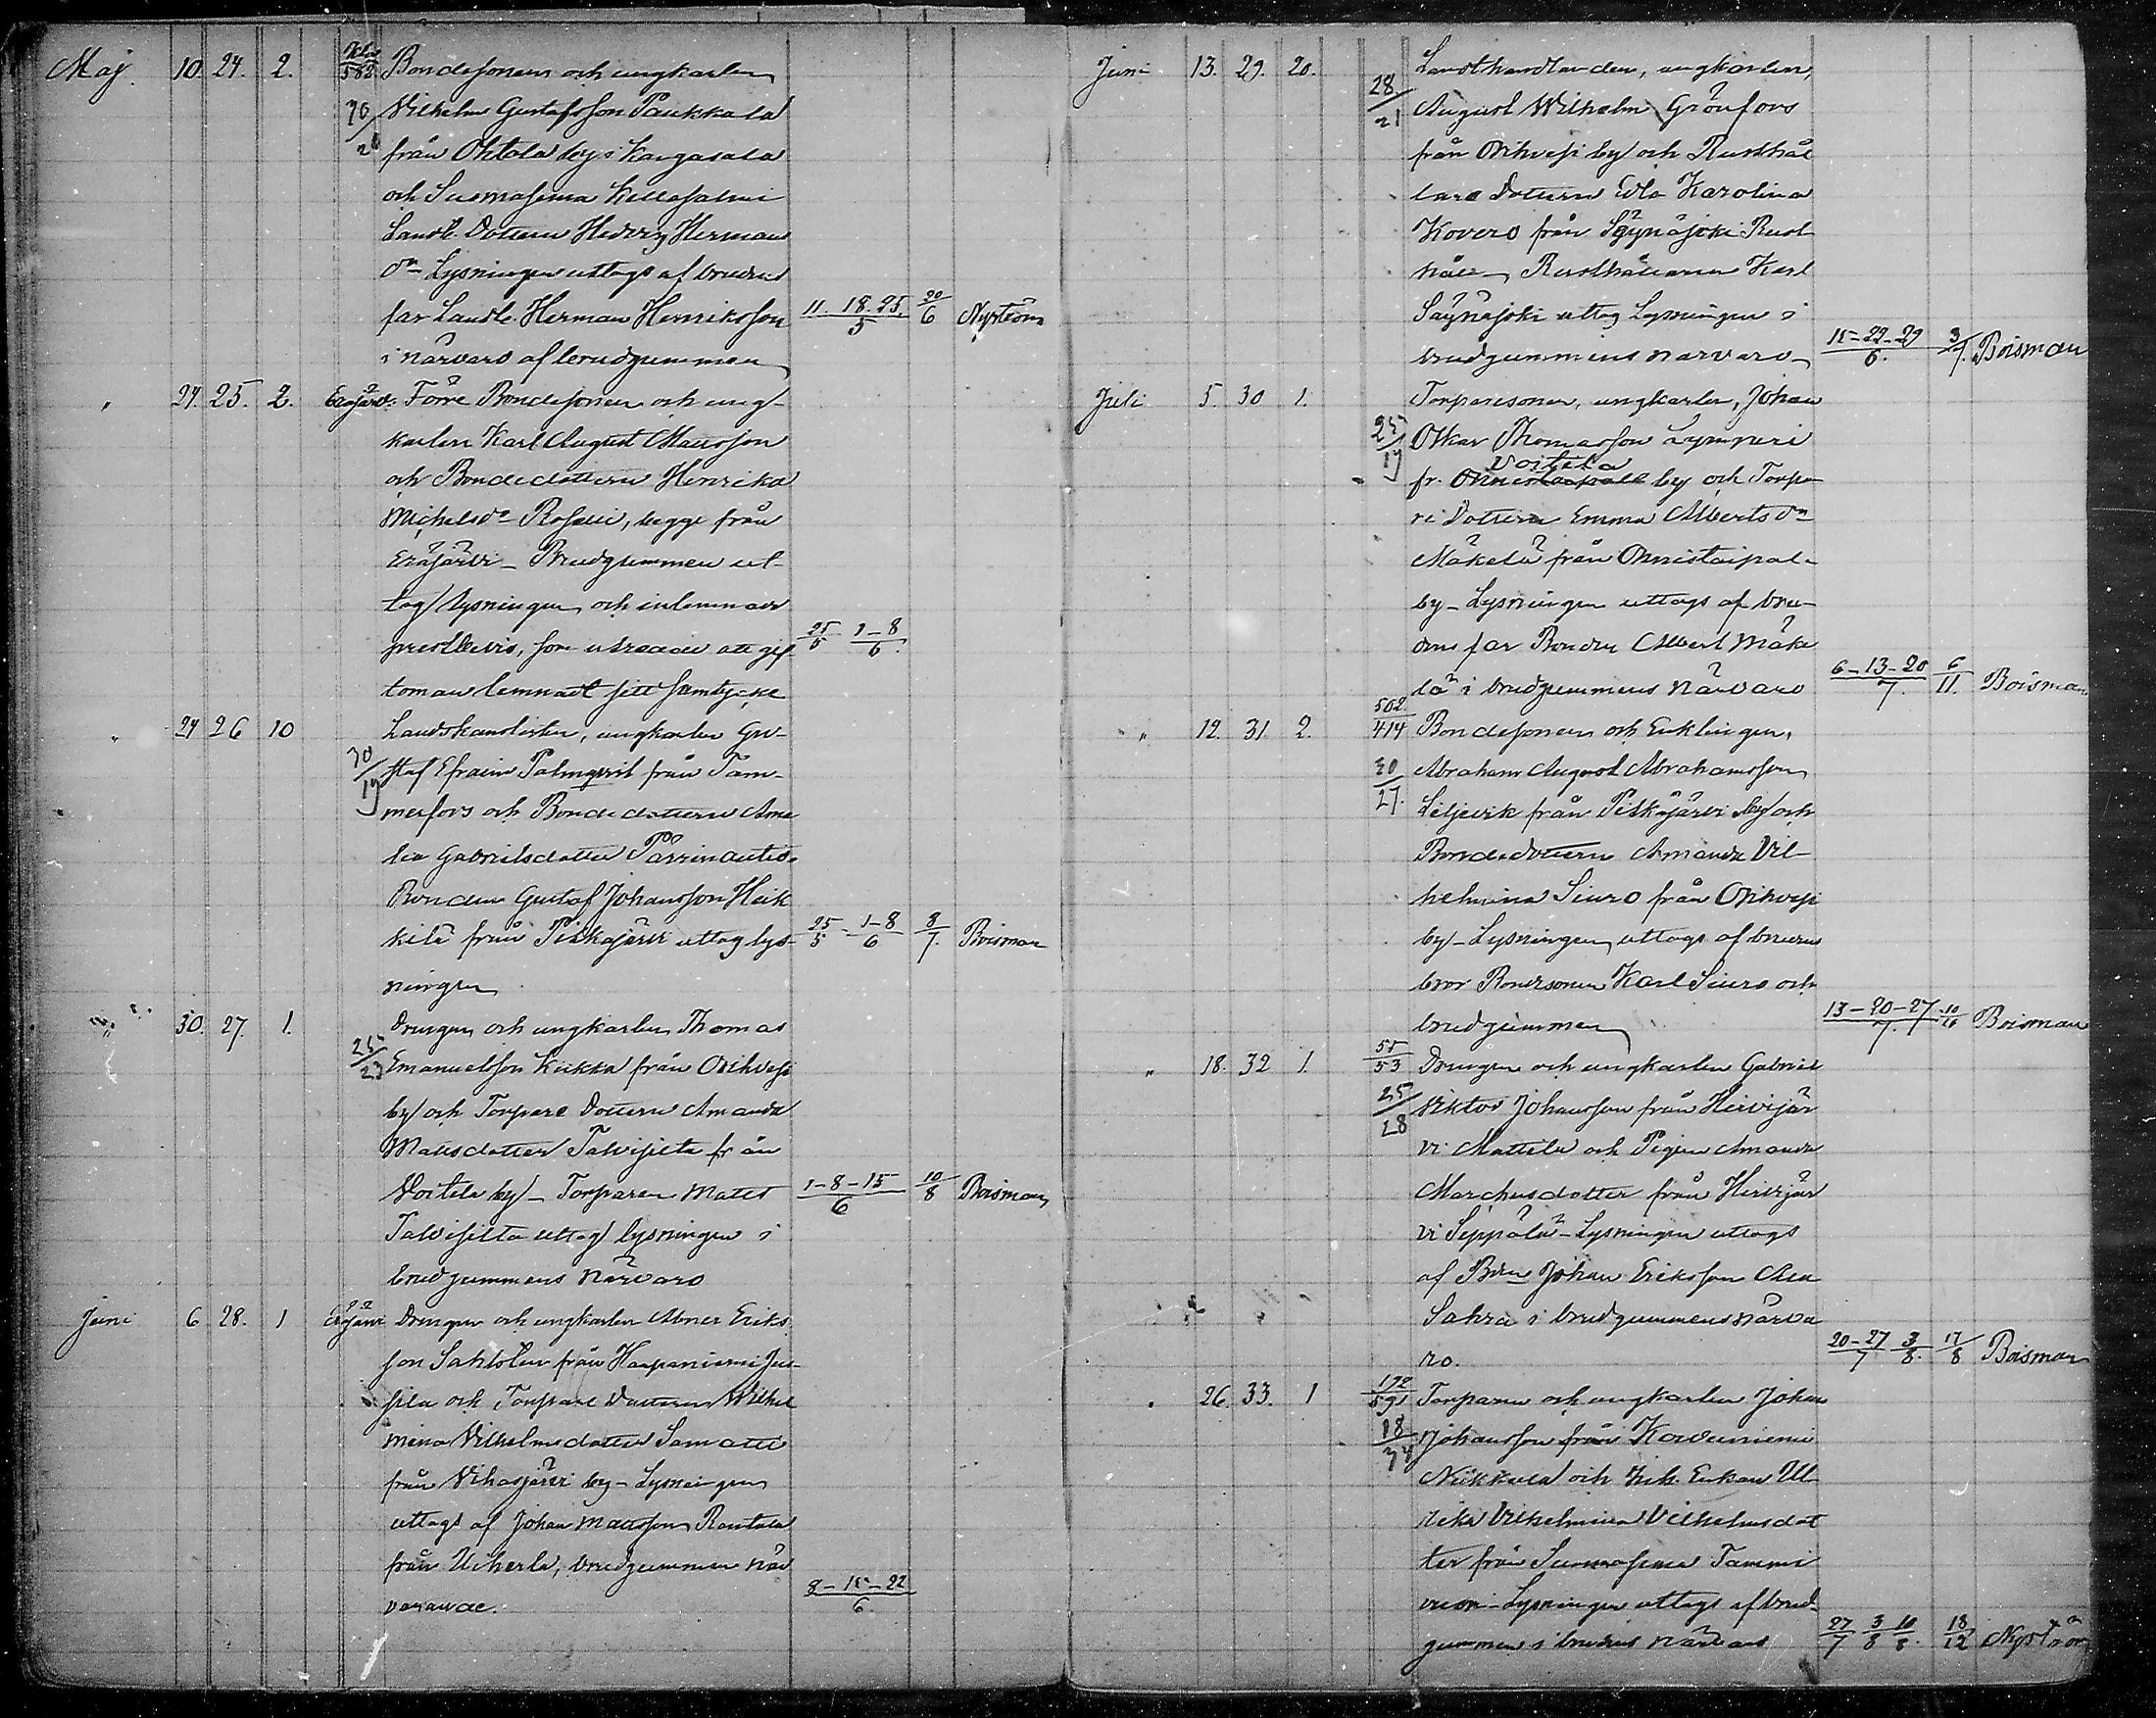 Maj 10. 24. 2. 582 Bondesonen och ungkarlen
30/21 Vilhelm Gustafsson Paukkala
från Ohtola by i Kangasala
och Suomasema Kellosalmi
Landb. Dottern Hedvig Hermans
dr Lysningen uttogs af brudens
far Landb. Herman Henriksson 11. 18. 25./5 20/6 Nyström
i närvaro af brudgummen
" 24. 25. 2. Eräjärvi. Förre Bondesonen och ung-
karlen Karl August Mansson
och Bondedottern Henrika
Michelsdr, begge från
Eräjärvi – Brudgummen ut-
tog lysningen och inlemnade
prestbevis, som utvisade att gif- 25/5 1–8/6
toman lemnat sitt samtycke
" 24 26 10 Landskanslisten, ungkarlen Gu-
30/19 staf Efraim Palmqvist från Tam-
merfors och Bondedottern Ama
lia Gabrielsdotter
Bonden Gustaf Johansson Heik
kilä från Pitkäjärvi uttog lys- 25/5 - 1–8/6 8/7. Boisman
ningen
" 30. 27. 1. Drengen och ungkarlen Thomas
25/23 Emanuelsson Kukka från Orihvesi
by och Torpare Dottern Amanda
Mattsdotter Talvisilta från
Voitila by – Torparen Matts 1–8–15/6 10/8 Boisman
Talvisilta uttog lysningen i
brudgummens närvaro
Juni 6 28. 1 Eräjärvi Drengen och ungkarlen Abner Eriks
son från Haapaniemi Jus-
sila och Torpare Dottern Wilhel
mina Vilhelmsdotter
från Vihasjärvi by – Lysningen
uttogs af Johan Mattsson Rantala
från Uiherla, brudgummen när
varande. 8–15–22/6.
Juni 13. 29. 20. Landthandlanden, ungkarlen,
28/21 August Wilhelm Grönfors
från Orihvesi by och Rusthål
lare Dottern Edla Karolina
Kovero från Säynäjoki Rust
håll – Rusthållaren Karl
Säynäjoki uttog Lysningen i
brudgummens närvaro – 15–22–29/6. 3/7. Boisman
Juli 5. 30 1. Torparesonen, ungkarlen, Johan
25/19 Oskar Thomasson Lymperi
Voitila
fr. Onnistaipale by och Torpa
re Dottern Emma Alberts dr
Mäkelä från Onnistaipale
by – Lysningen uttogs af bru-
dens far Bonden Albert Mäke
lä i brudgummens närvaro 6–13–20/7. 6/11. Boisman
" 12. 31. 2. 502/414 Bondesonen och Enklingen,
30/27. Abraham August Abrahamsson
Liljevik från Pitkäjärvi by och
Bondedottern Amanda Vil-
helmina Siuro från Orihvesi
by – Lysningen uttogs af brudens
bror Bondesonen Karl Siuro och
brudgummen 13–20–27/7. Boisman
" 18. 32 1. 55/53 Drengen och ungkarlen Gabriel
25/28 Viktor Johansson från Hirvijär
vi Mattila och Pigan Amanda
Marchusdotter från Hirvijär
vi Seppälä – Lysningen uttogs
af Bden Johan Eriksson Ala
Sahra i brudgummens närva
ro. 20–27/7 3/8. 17/8 Boisman
" 26. 33. 1 192/591 Torparen och ungkarlen Johan
18/34 Johansson från Korvenniemi
Nikkilä och Inh. Enkan Ul
rika Vilhelmina Vilhelmsdot
ter från Suomasema Tammi
vuori – Lysningen uttogs af brud-
gummen i brudens närvaro 27/7 3/8 10/8. 18/12 Nyström